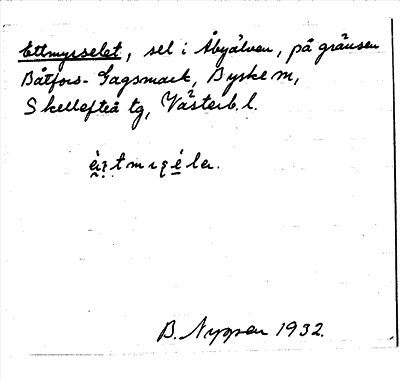 Ettmyrselet, sel i Åbyälven, på gränsen
Båtfors-Gagsmark, Byske m,
Skellefteå tg, Västerb. l.
B. Nygren 1932.